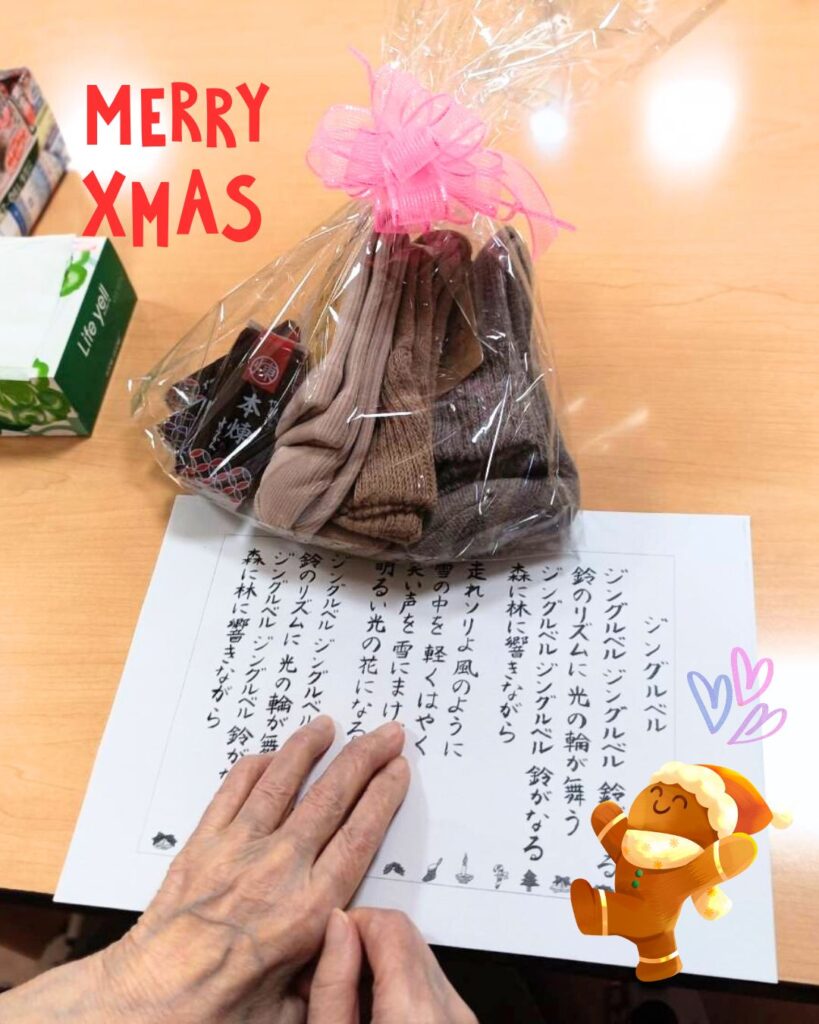 MERRY
XMAS
Life yell
煉
本煉
ジングルベル
ジングルベル ジングルベル 鈴 る
鈴のリズムに 光の輪が舞う
ジングルベル ジングルベル 鈴がなる
森に林に響きながら
走れソリよ 風のように
雪の中を 軽くはやく
笑い声を 雪にまけ
明るい光の 花になる
ジングルベル ジングルベル
鈴のリズムに 光の輪が舞
ジングルベル ジングルベル 鈴が
森に林に響きながら